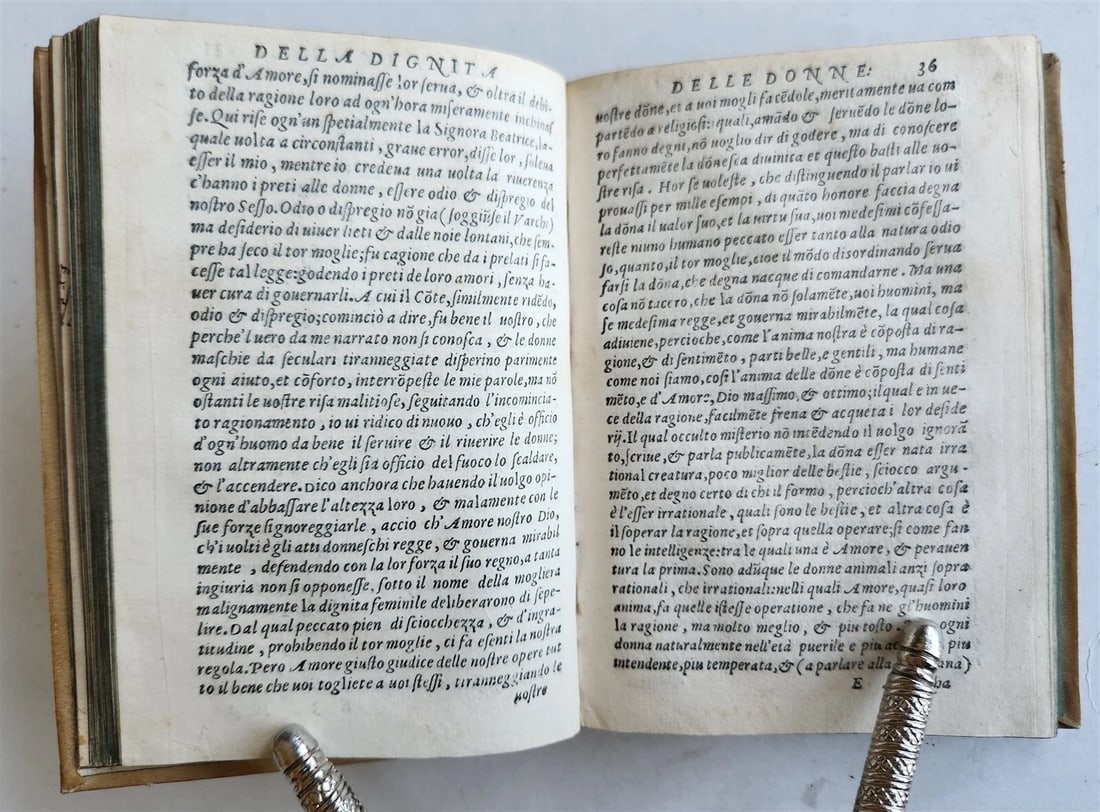 DELLA DIGNITA
forza d'Amore, si nominasse lor serua, & oltra il debi-
to della ragione loro ad ogn'hora miseramente inchinas
se. Qui rise ogn'un spetialmente la Signora Beatrice, la-
quale uolta a circonstanti, graue error, disse lor, soleua
esser il mio, mentre io credeua una uolta la riuerenza
c'hanno i preti alle donne, essere odio & dispregio del
nostro Sesso. Odio o dispregio nõ gia (soggiũse il Varchi)
ma desiderio di uiuer lieti & dalle noie lontani, che sem-
pre ha seco il tor moglie; fu cagione che da i prelati si fa-
cesse tal legge: godendo i preti de loro amori, senza ha-
uer cura di gouernarli. A cui il Cõte, similmente ridẽdo,
odio & dispregio; cominciò a dire, fu bene il uostro, che
perche'l uero da me narrato non si conosca, & le donne
maschie da seculari tiranneggiate disperino parimente
ogni aiuto, et cõforto, interrõpeste le mie parole, ma nõ
ostanti le uostre risa malitiose, seguitando l'incomincia-
to ragionamento, io ui ridico di nuouo, ch'egli è officio
d'ogn'huomo da bene il seruire & il riuerire le donne;
non altramente ch'egli sia officio del fuoco lo scaldare,
& l'accendere. Dico anchora che hauendo il uolgo opi-
nione d'abbassare l'altezza loro, & malamente con le
sue forze signoreggiarle, accio ch'Amore nostro Dio,
ch'i uolti è gli atti donneschi regge, & gouerna mirabil
mente, defendendo con la lor forza il suo regno, a tanta
ingiuria non si opponesse, sotto il nome della mogliera
malignamente la dignita feminile deliberarono di sepe-
lire. Dal qual peccato pien di sciocchezza, & d'ingra-
titudine, prohibendo il tor moglie, ci fa esenti la nostra
regola. Pero Amore giusto giudice delle nostre opere tut
to il bene che uoi togliete a uoi stessi, tiranneggiando le
uostre
DELLE DONNE: 36
uostre dõne, et a uoi mogli facẽdole, meritamente ua com
partẽdo a religiosi: quali, amãdo & seruẽdo le dõne lo-
ro fanno degni, nõ uoglio dir di godere, ma di conoscere
perfettamẽte la dõnesca diuinita et questo basti alle uo-
stre risa. Hor se uoleste, che distinguendo il parlar io ui
prouassi per mille esempi, di quãto honore faccia degna
la dõna il ualor suo, et la uirtu sua, uoi medesimi cõfessa-
reste niuno humano peccato esser tanto alla natura odio
so, quanto, il tor moglie, cioe il mõdo disordinando serua
farsi la dõna, che degna nacque di comandarne. Ma una
cosa nõ tacerò, che la dõna nõ solamẽte, uoi huomini, ma
se medesima regge, et gouerna mirabilmẽte, la qual cosa
adiuiene, percioche, come l'anima nostra è cõposta di ra-
gione, & di sentimẽto, parti belle, e gentili, ma humane
come noi siamo, cosi l'anima delle dõne è cõposta di senti
mẽto, e d'Amore, Dio massimo, & ottimo; ilqual e in ue-
ce della ragione, facilmẽte frena & acqueta i lor deside
rij. Il qual occulto misterio nõ intẽdendo il uolgo ignorã
to, scriue, & parla publicamẽte, la dõna esser nata irra
tional creatura, poco miglior delle bestie, sciocco argu-
mẽto, et degno certo di chi il formo, percioch'altra cosa
è l'esser irrationale, quali sono le bestie, et altra cosa è
il soperar la ragione, et sopra quella operare; si come fan
no le intelligenze: tra le quali una è Amore, & perauen
tura la prima. Sono adũque le donne animali anzi sopra
rationali, che irrationali: nelli quali Amore, quasi loro
anima, fa quelle istesse operatione, che fa ne gl'huomini
la ragione, ma molto meglio, & piu tosto. ogni
donna naturalmente nell'età puerile e piu piu
intendente, piu temperata, & (a parlare alla
E